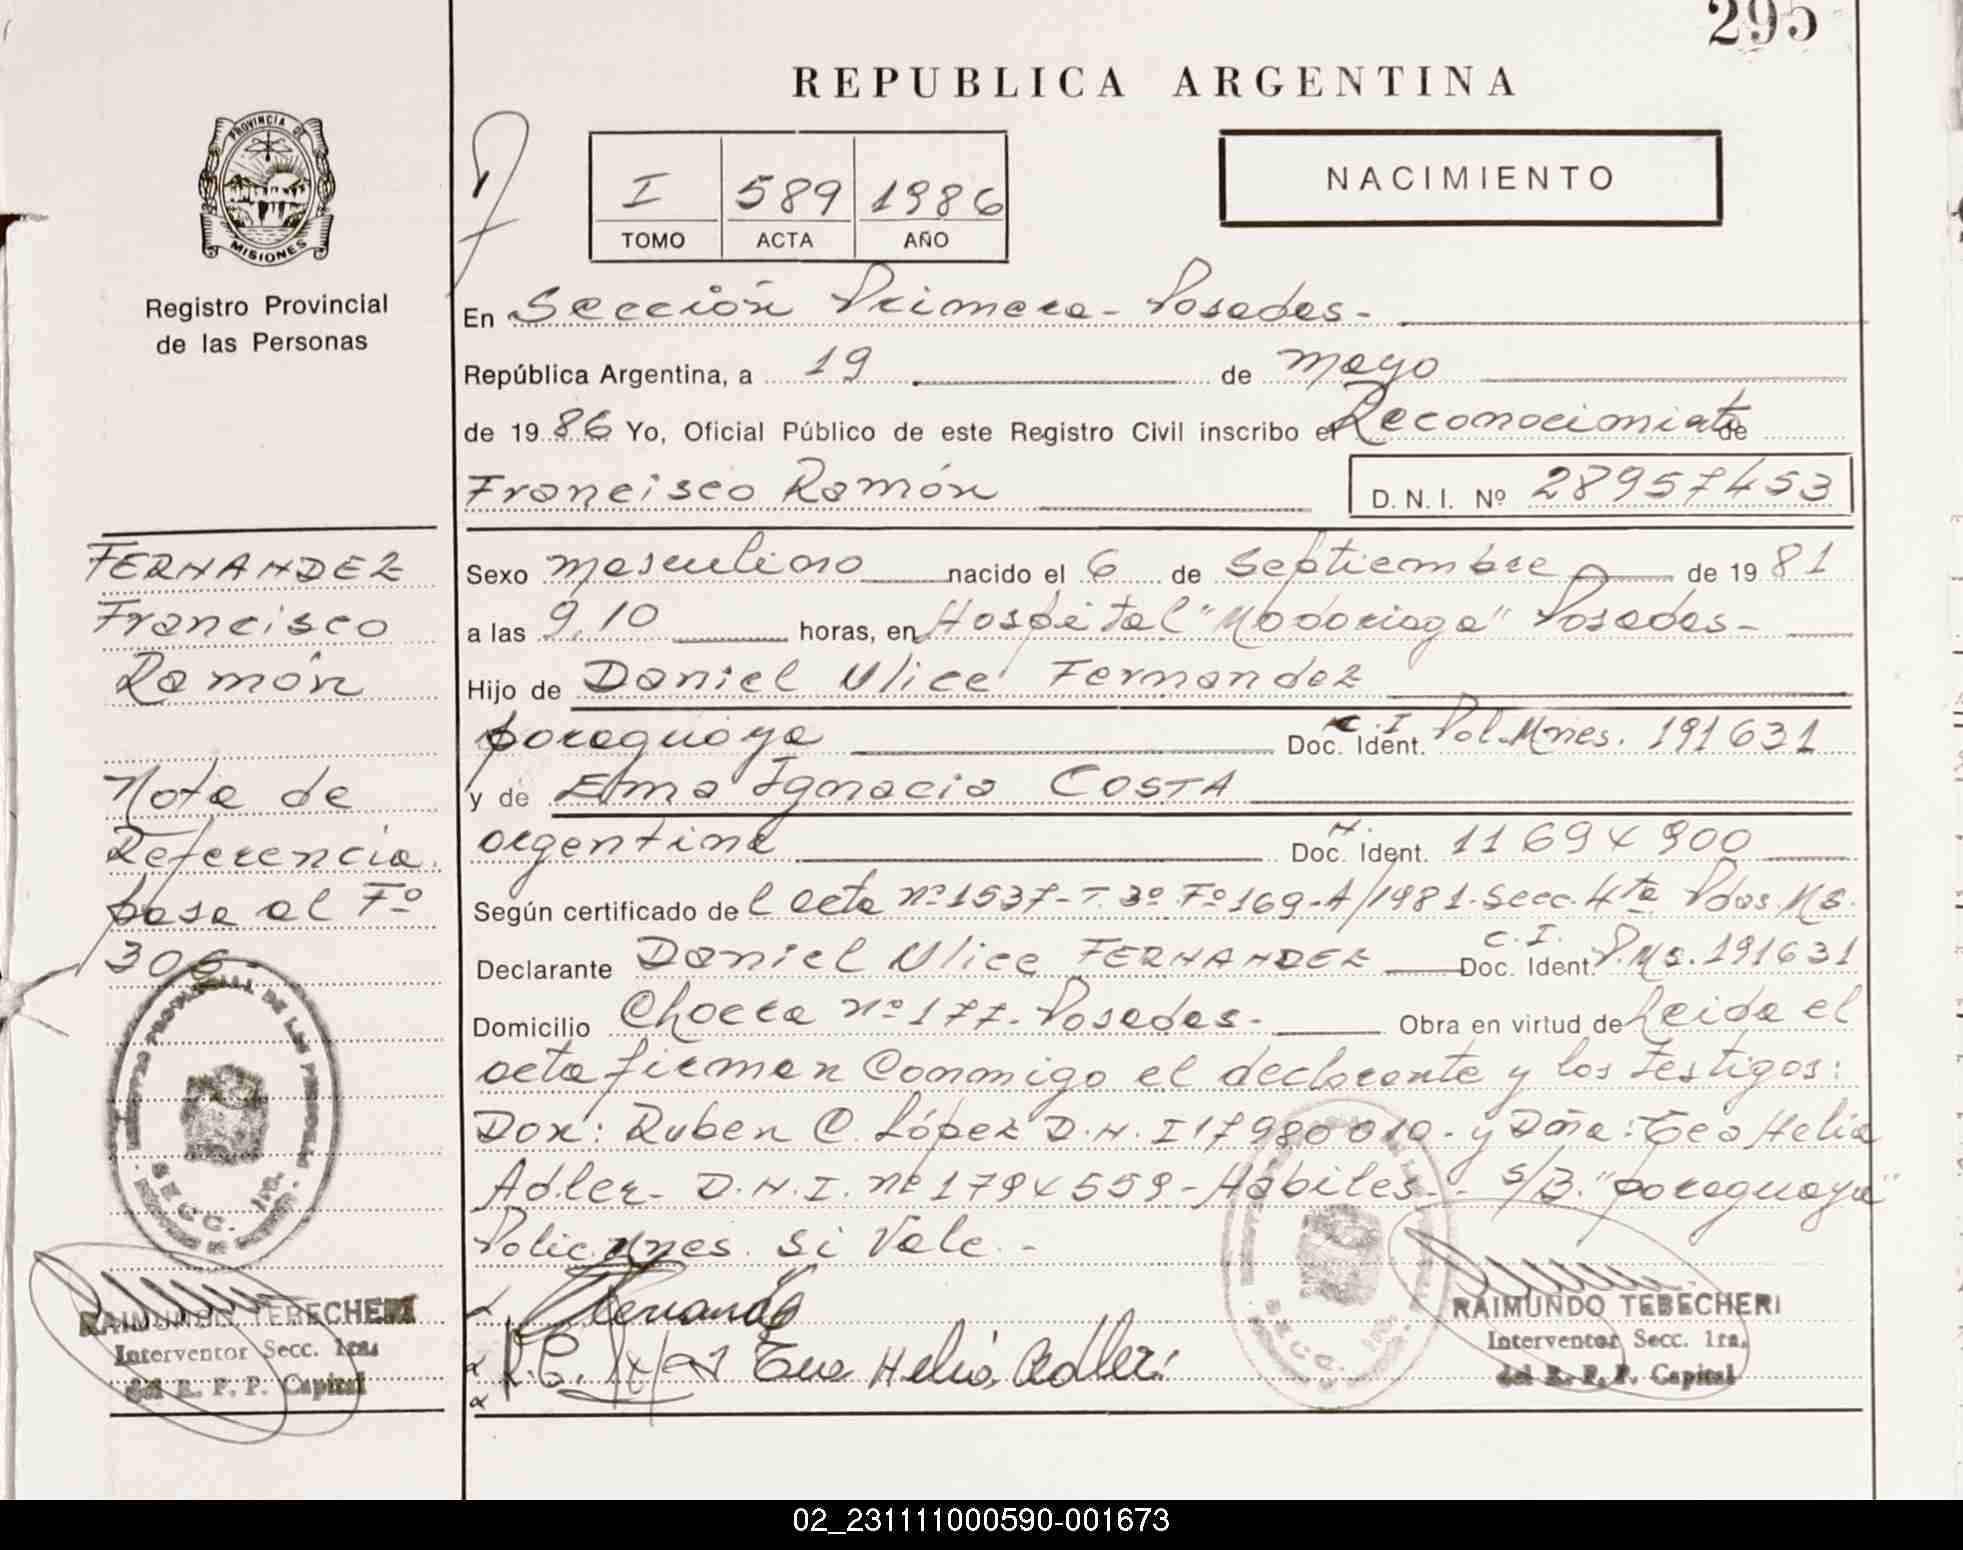 295
REPUBLICA ARGENTINA
PROVINCIA DE
MISIONES
Registro Provincial
de las Personas
I 589 1986
TOMO ACTA AÑO
NACIMIENTO
En Sección Primera - Posadas -
República Argentina, a 19 de mayo
de 1986 Yo, Oficial Público de este Registro Civil inscribo el Reconocimiento de
Francisco Ramón D.N.I. Nº 28957453
Sexo masculino nacido el 6 de Septiembre de 1981
a las 9,10 horas, en Hospital "Madariaga" Posadas -
Hijo de Daniel Ulice Fernandez
paraguaya Doc. Ident. C.I Pol. Mnes. 191631
y de Elma Ignacia COSTA
argentina Doc. Ident. 11694900
Según certificado del acta nº 1537 - T. 3º Fº 169 - A/1981. Secc. 4ta Pdas. Ms.
Declarante Daniel Ulice FERNANDEZ Doc. Ident. C.I. P. Ms. 191631
Domicilio Chacra nº 177 - Posadas - Obra en virtud de Leida el
acta firman conmigo el declarante y los testigos:
Don: Ruben C. López D.N.I 17980010 - y Dña: Eva Helia
Adler - D.N.I. nº 1794559 - Hábiles - s/B. "paraguaya"
Polic. Mnes. Si Vale -
Fernandez
R.C. López Eva Helia Adler
FERNANDEZ
Francisco
Ramón
Nota de
Referencia
pasa al Fº
306 -
REGISTRO PROVINCIAL DE LAS PERSONAS
SECC. 1ra.
RAIMUNDO TEBECHERI
Interventor Secc. 1ra.
del R. P. P. Capital
SECC. 1ra.
RAIMUNDO TEBECHERI
Interventor Secc. 1ra.
del R. P. P. Capital
02_231111000590-001673